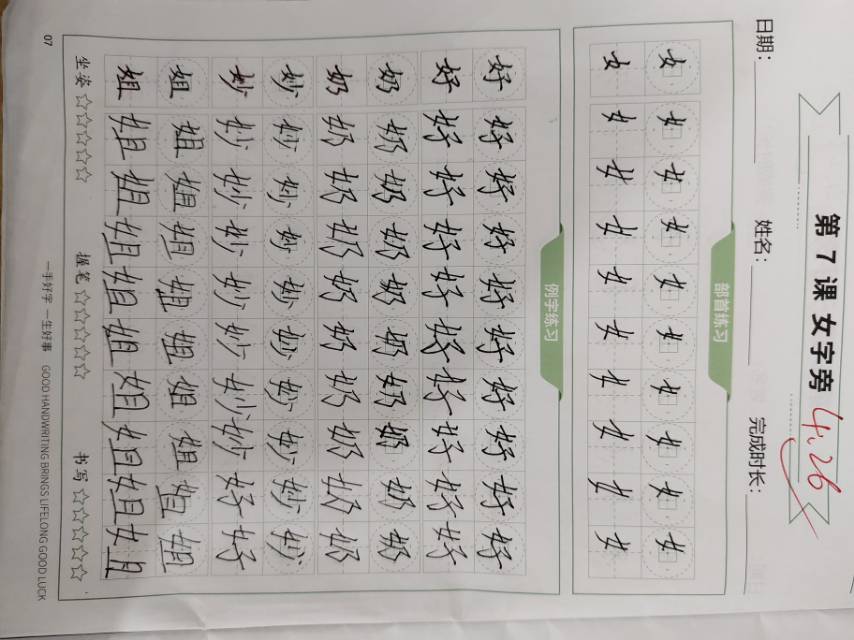 第 7 课 女字旁 4.26
日期： 姓名： 完成时长：
部首练习
女女女女女女女女女女
女女女女女女女女女女
例字练习
好好好好好好好好好好
好好好好好好好好好好
奶奶奶奶奶奶奶奶奶奶
奶奶奶奶奶奶奶奶奶奶
妙妙妙妙妙妙妙妙妙妙
妙妙妙妙妙妙妙妙好好
姐姐姐姐姐姐姐姐姐姐
姐姐姐姐姐姐姐姐姐姐
坐姿 ☆☆☆☆☆ 握笔 ☆☆☆☆☆ 书写 ☆☆☆☆☆
07 一手好字 一生好事 GOOD HANDWRITING BRINGS LIFELONG GOOD LUCK